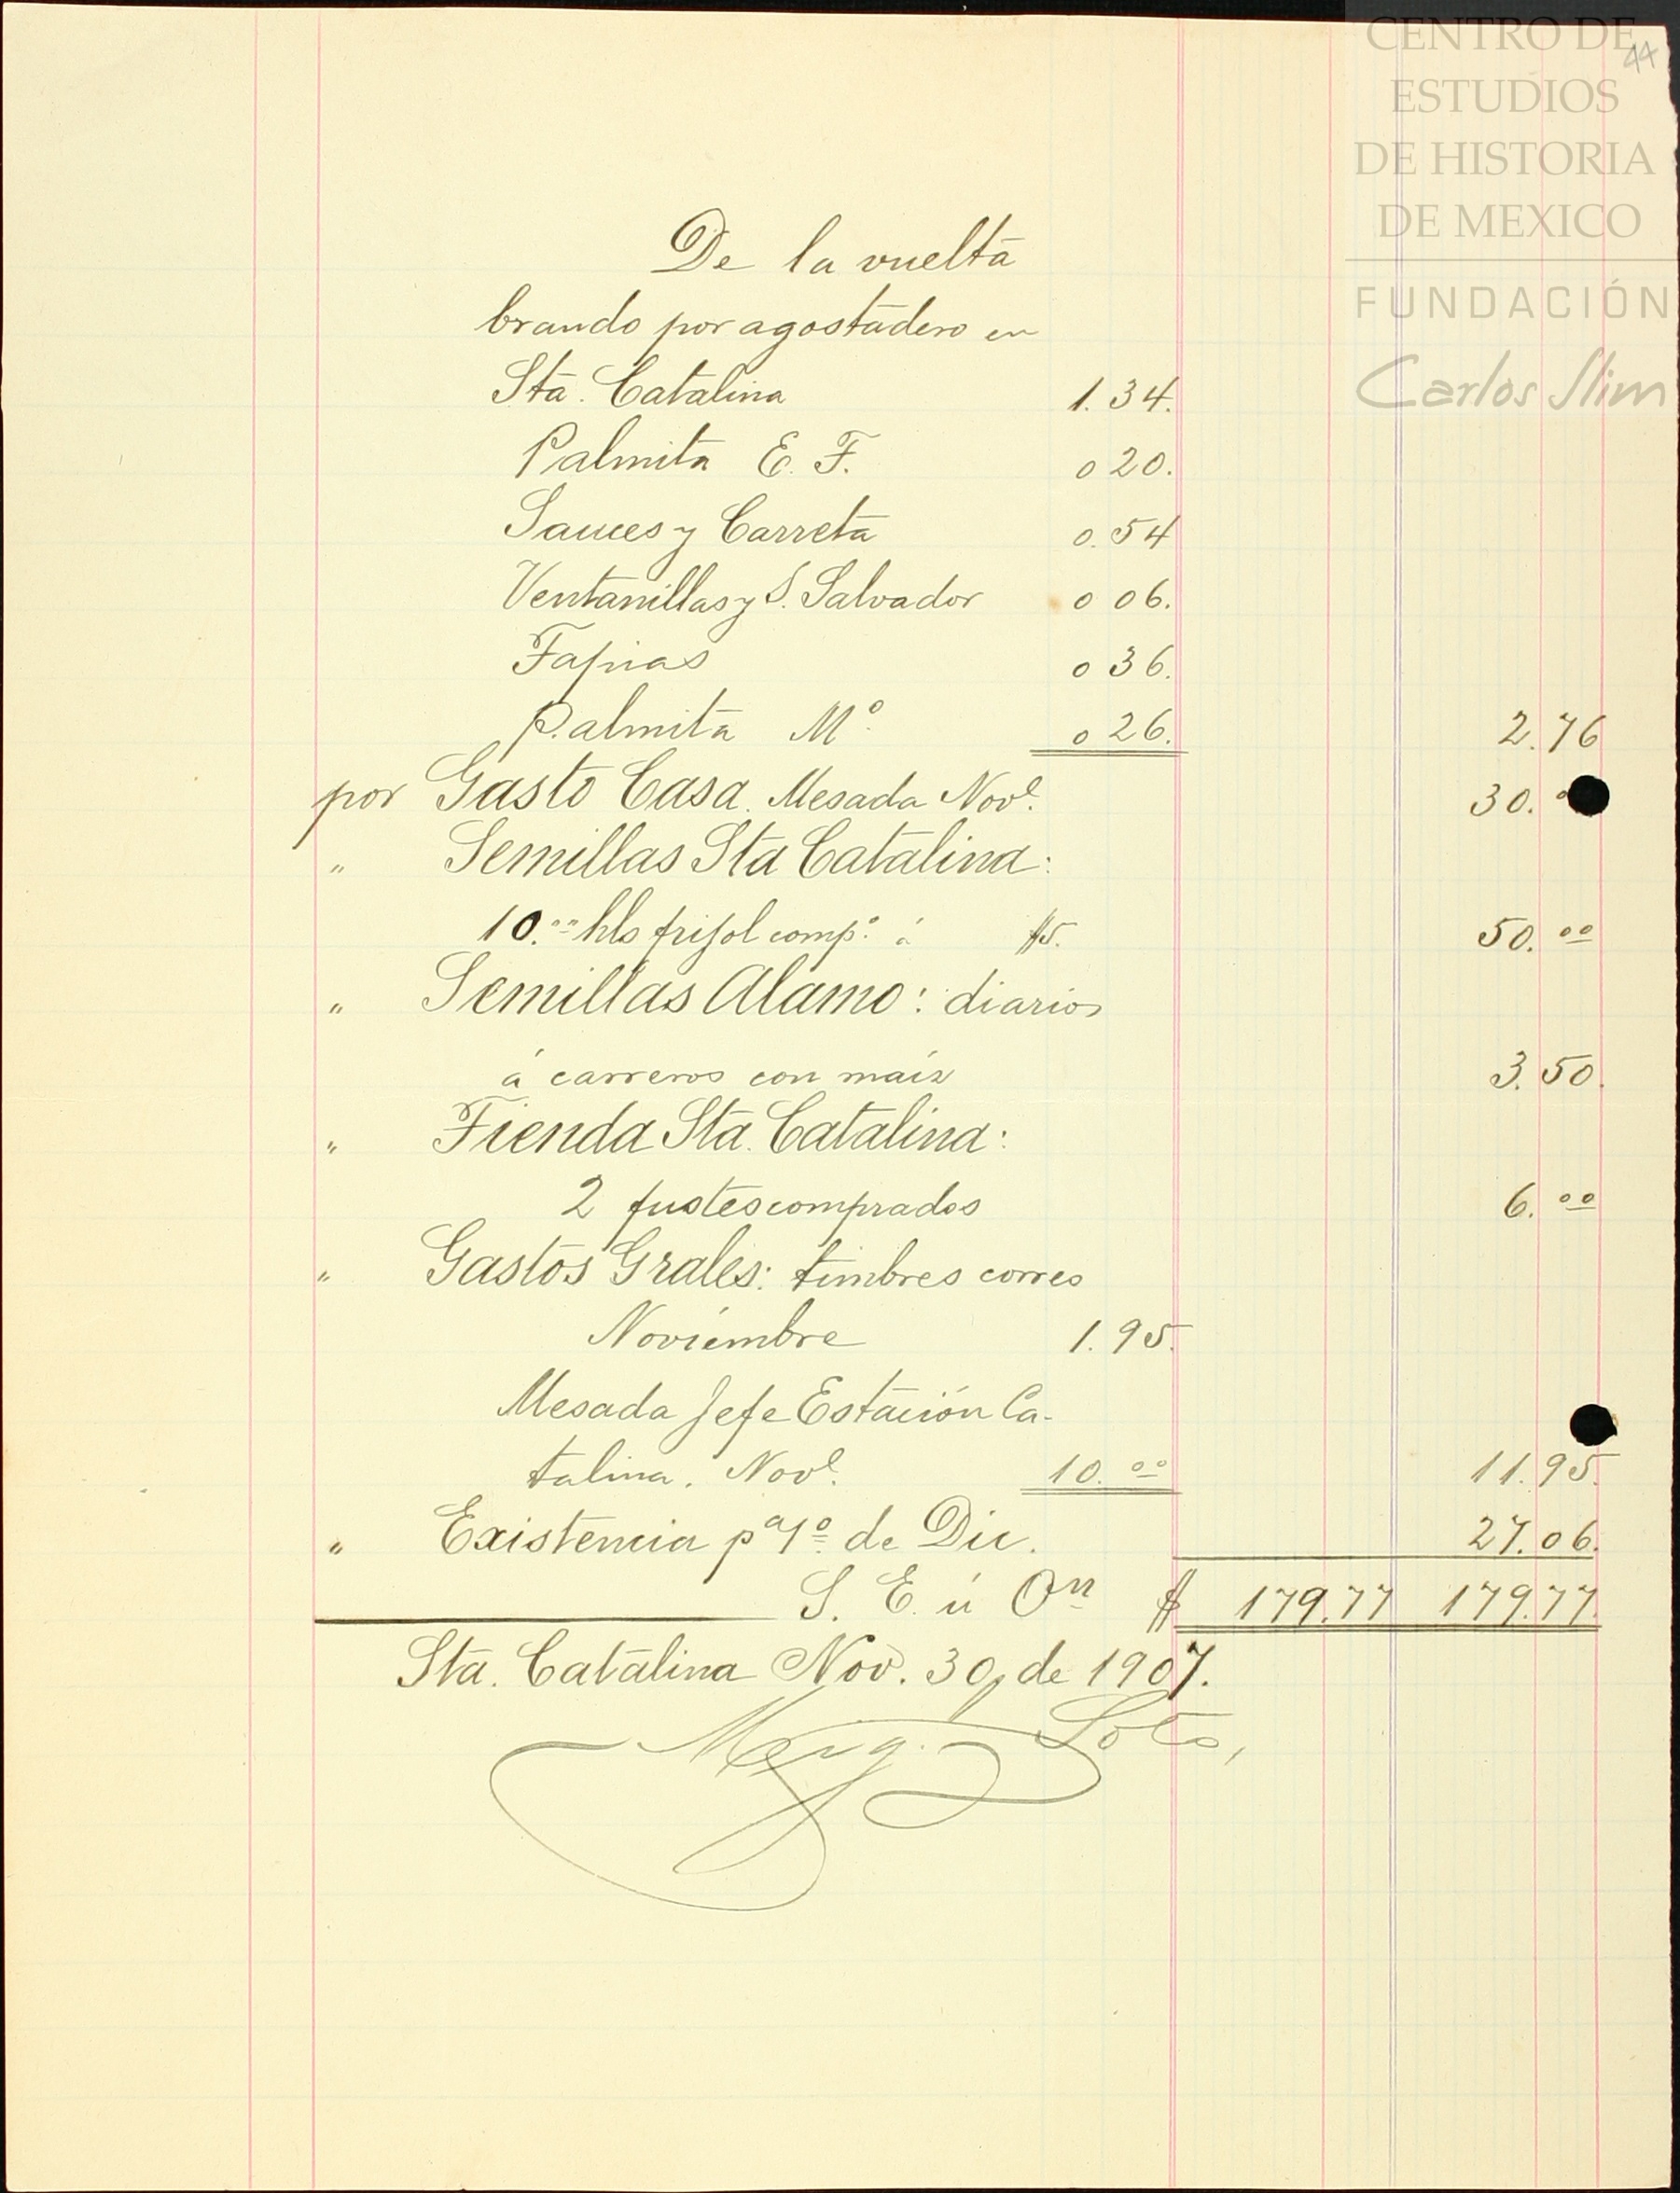 CENTRO DE
ESTUDIOS
DE HISTORIA
DE MEXICO
FUNDACIÓN
Carlos Slim
44
De la vuelta
brando por agostadero en
Sta. Catalina 1.34.
Palmita E. F. 0 20.
Sauces y Carreta 0.54
Ventanillas y S. Salvador 0 06.
Tapias 0 36.
Palmita Mº 0 26. 2.76
por Gasto Casa. Mesada Nove. 30.
" Semillas Sta Catalina:
10.00 hls frijol comp.º á $5. 50.00
" Semillas Alamo: diarios
á carreros con maíz 3.50.
" Tienda Sta. Catalina:
2 fustes comprados 6.00
" Gastos Grales: timbres correo
Noviembre 1.95.
Mesada Jefe Estación Ca-
talina. Nove. 10.00 11.95.
" Existencia pª 1º de Dic. 27.06.
S. E. ú On $ 179.77 179.77.
Sta. Catalina Nov. 30, de 1907.
Mig. Soto,